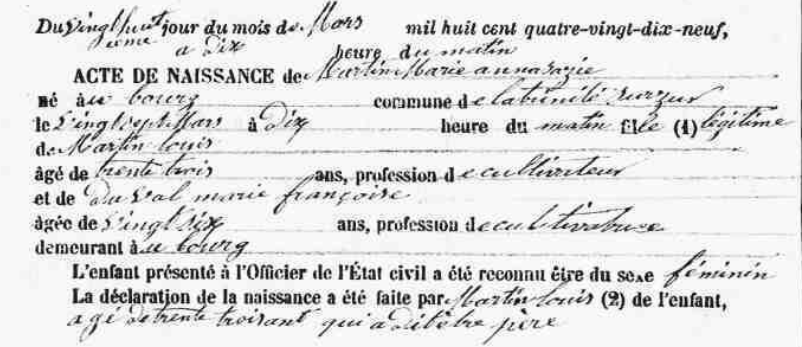 Du Vingt huit jour du mois de Mars mil huit cent quatre-vingt-dix-neuf,
ieme a Dix heure du matin
ACTE DE NAISSANCE de Martin Marie anna
né àu bourg commune de latrinité surzur
le Vingt sept Mars à Dix heure du matin fille (1) légitime
de Martin Louis
âgé de trente trois ans, profession de cultivateur
et de Duval marie françoise
âgée de Vingt six ans, profession de cultivatrice
demeurant àu bourg
L'enfant présenté à l'Officier de l'État civil a été reconnu être du sexe féminin
La déclaration de la naissance a été faite par Martin Louis (2) de l'enfant,
agé de trente trois ant qui a dit être père